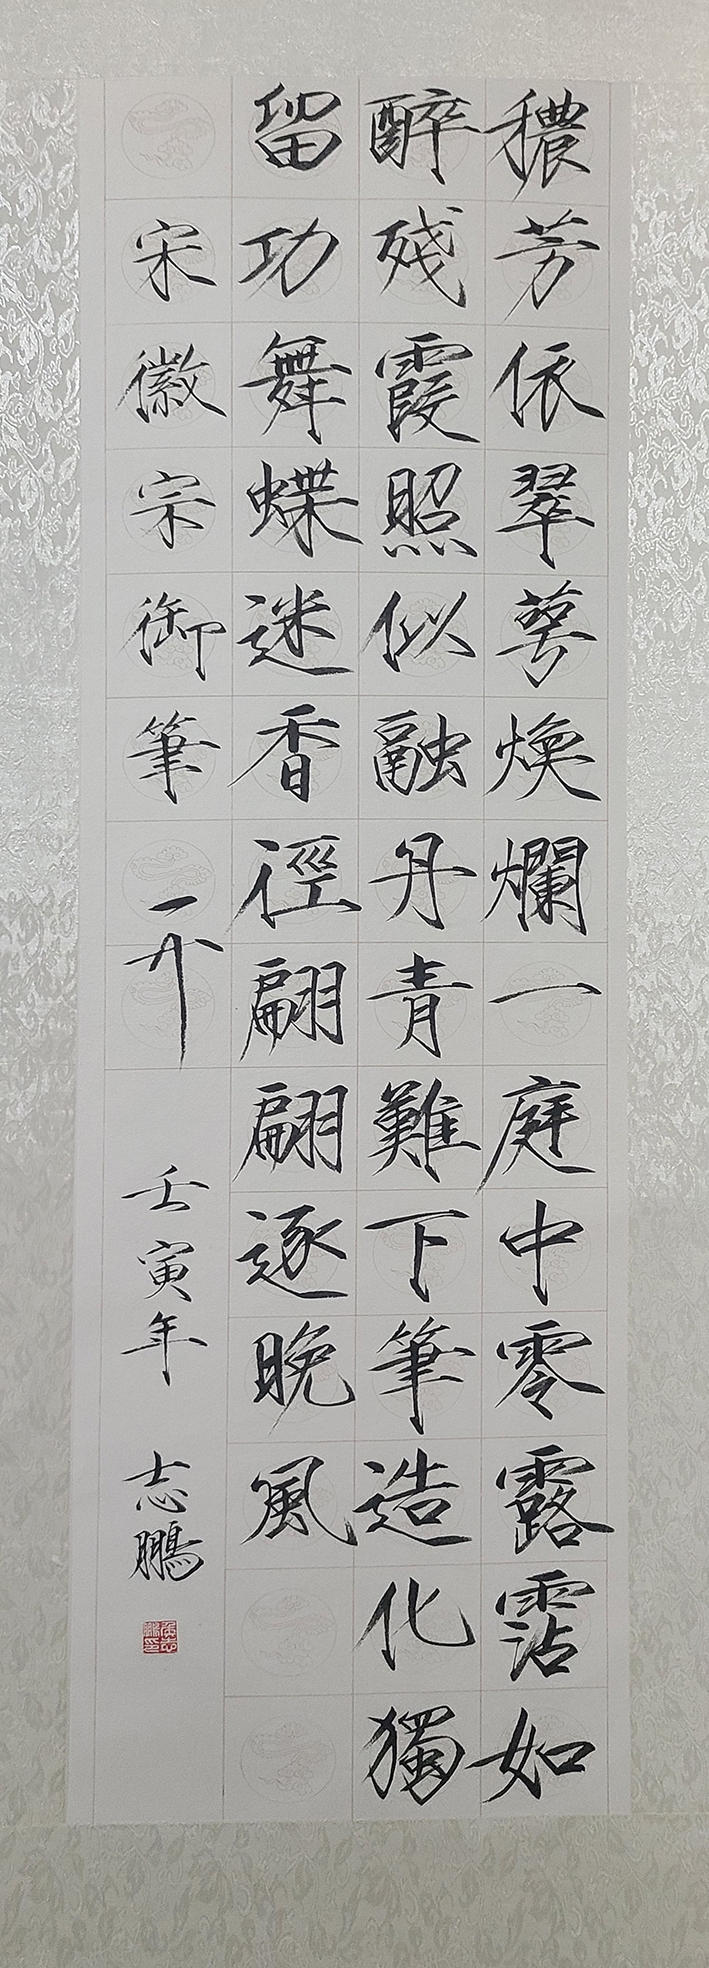 穠芳依翠萼煥爛一庭中零露霑如
醉殘霞照似融丹青難下筆造化獨
留功舞蝶迷香徑翩翩逐晚風
宋徽宗御筆
壬寅年 志鵬